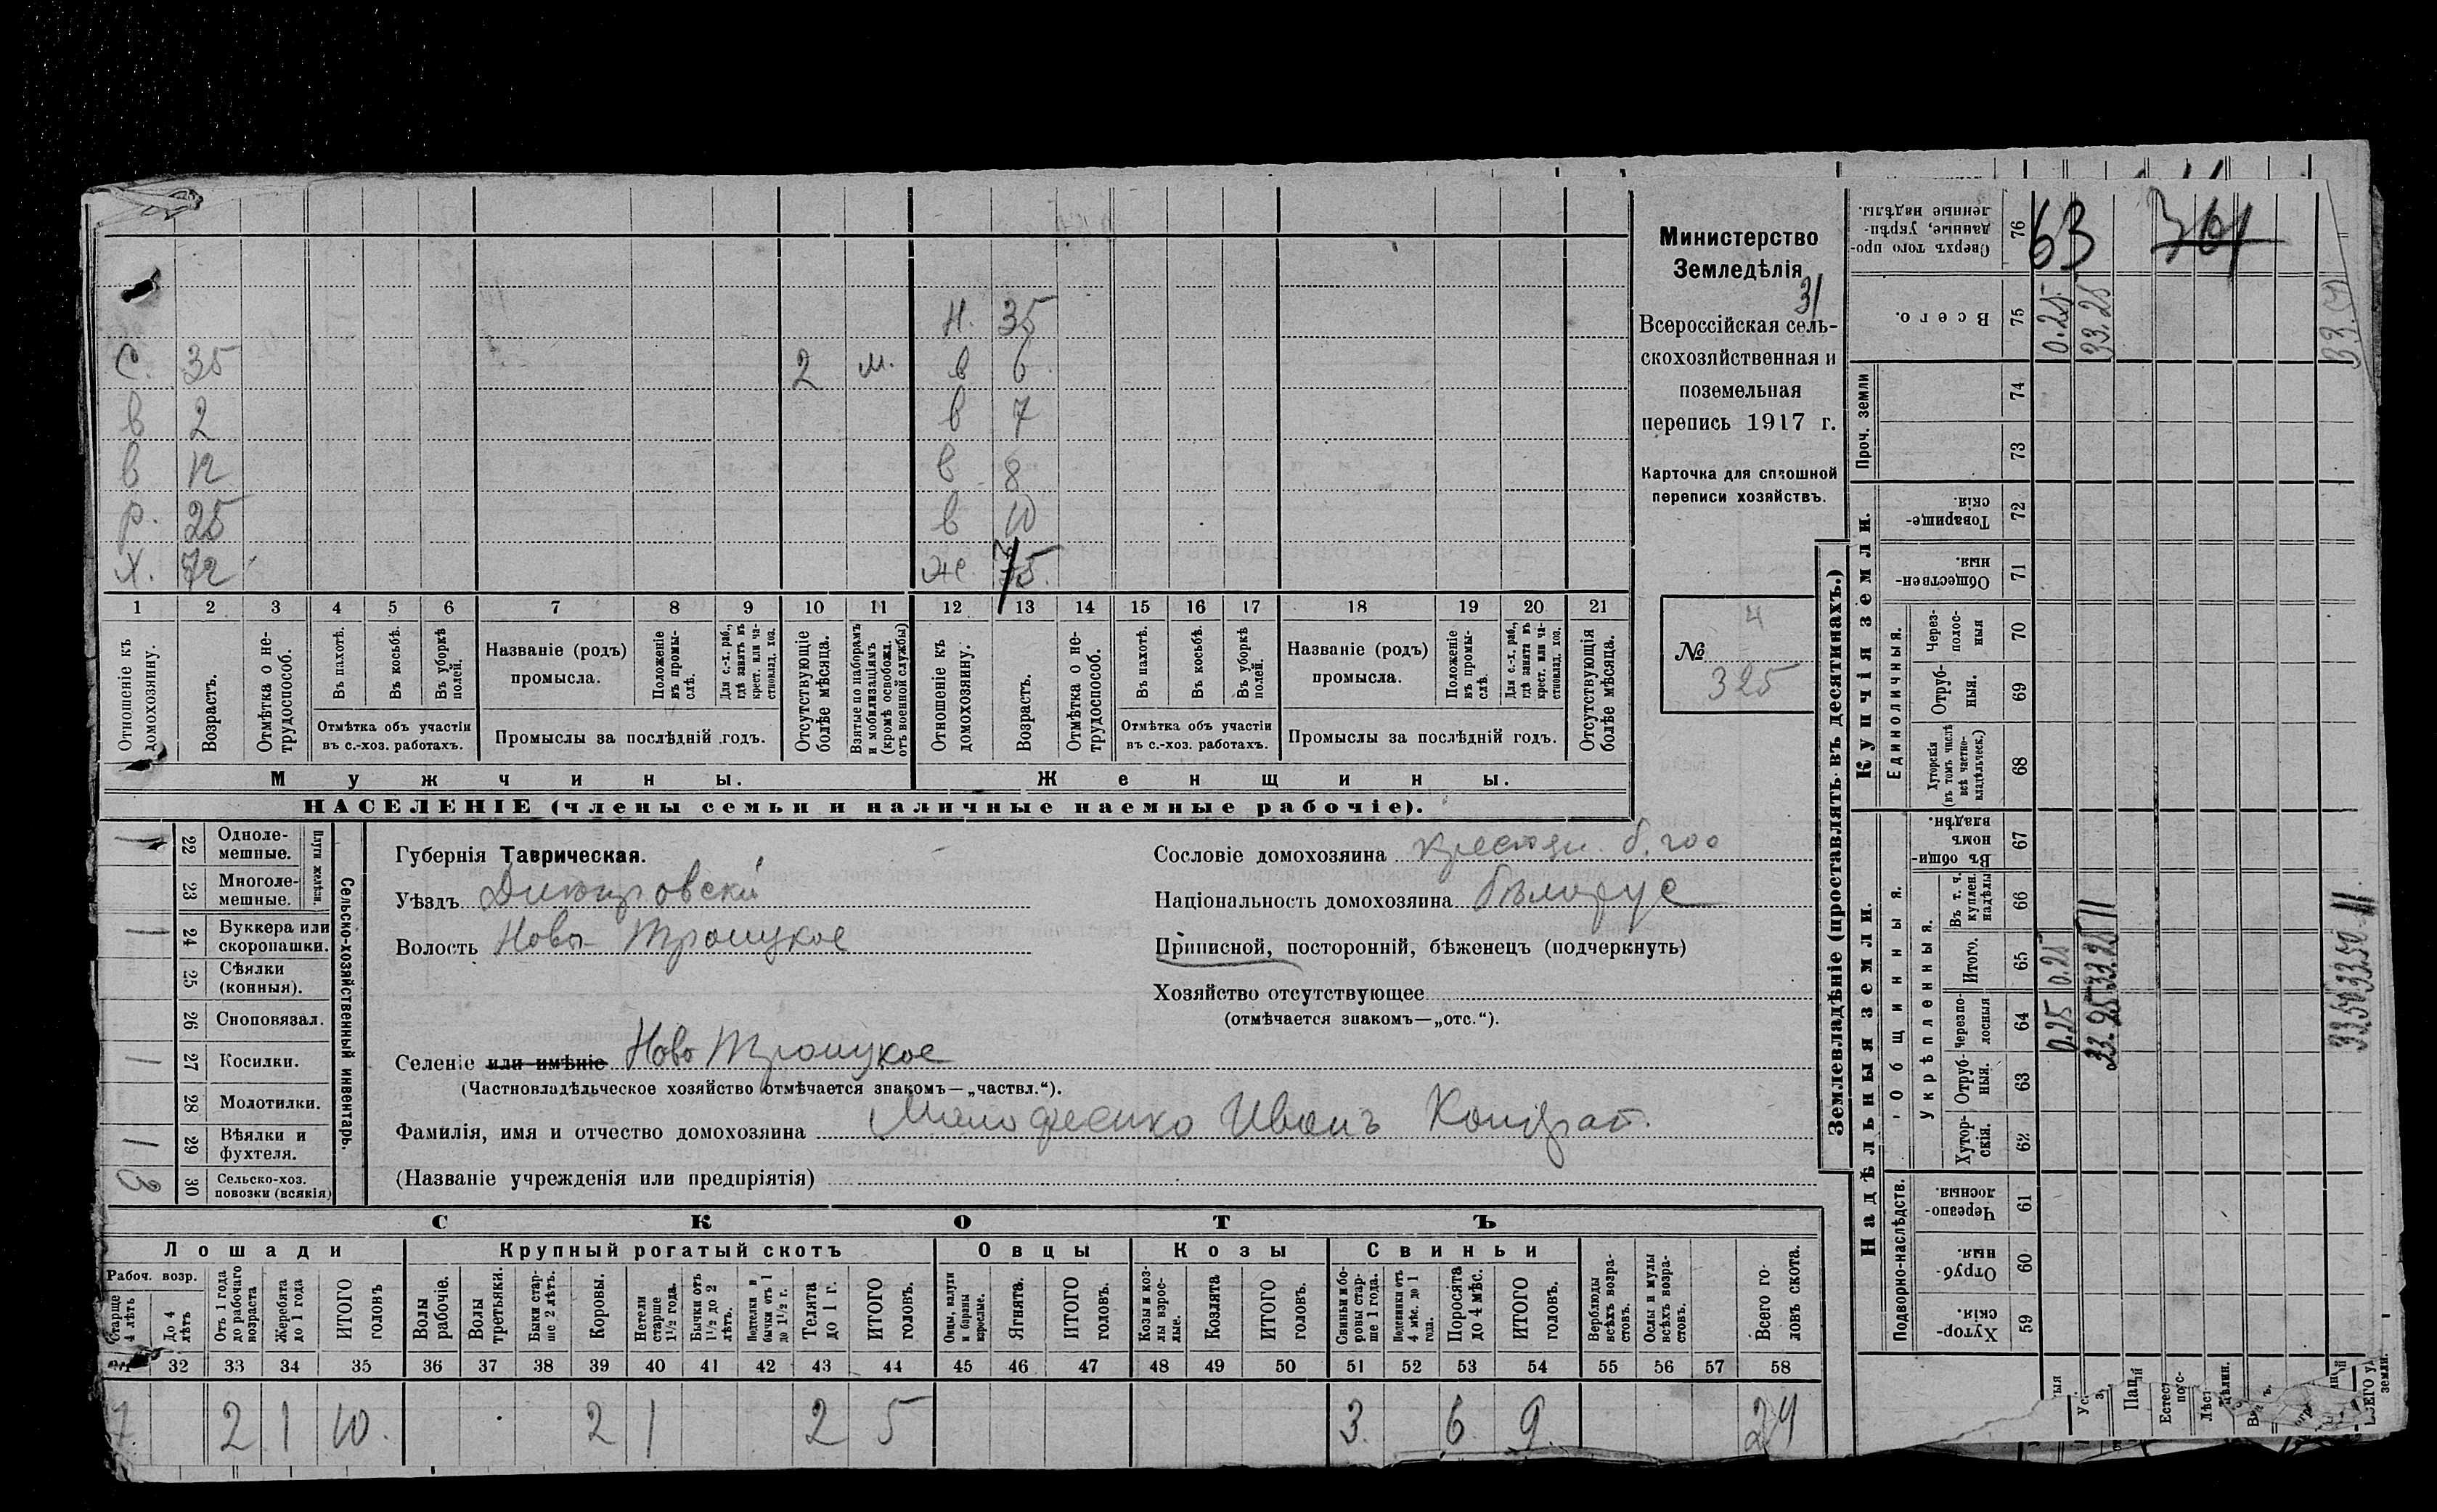 Министерство
Земледѣлія
31
Всероссійская сель-
скохозяйственная и
поземельная
перепись 1917 г.
Карточка для сплошной
переписи хозяйствъ.
№ 4
325
Н. 35
С. 35 2 м. в 6
в 2 в 7
в 12 в 8
р. 25 в 10
Х. 72 же. 75.
1 2 3 4 5 6 7 8 9 10 11 12 13 14 15 16 17 18 19 20 21
Отношеніе къ домохозяину.
Возрастъ.
Отмѣтка о не-трудоспособ.
Въ пахотѣ.
Въ косьбѣ.
Въ уборкѣ полей.
Отмѣтка объ участіи въ с.-хоз. работахъ.
Названіе (родъ) промысла.
Положеніе въ промы-слѣ.
Для с.-х. раб., гдѣ занятъ въ крест. или ча-стновлад. хоз.
Промыслы за послѣдній годъ.
Отсутствующіе болѣе мѣсяца.
Взятые по наборамъ и мобилизаціямъ (кромѣ освобожд. отъ военной службы)
Отношеніе къ домохозяину.
Возрастъ.
Отмѣтка о не-трудоспособ.
Въ пахотѣ.
Въ косьбѣ.
Въ уборкѣ полей.
Отмѣтка объ участіи въ с.-хоз. работахъ.
Названіе (родъ) промысла.
Положеніе въ промы-слѣ.
Для с.-х. раб., гдѣ занята въ крест. или ча-стновлад. хоз.
Промыслы за послѣдній годъ.
Отсутствующія болѣе мѣсяца.
Мужчины. Женщины.
НАСЕЛЕНІЕ (члены семьи и наличные наемные рабочіе).
Сельско-хозяйственный инвентарь.
Плуги желѣзн.
1 22 Одноле-мешные.
23 Многоле-мешные.
1 24 Буккера или скоропашки.
25 Сѣялки (конныя).
26 Сноповязал.
1 27 Косилки.
28 Молотилки.
1 29 Вѣялки и фухтеля.
3 30 Сельско-хоз. повозки (всякія)
Губернія Таврическая.
Уѣздъ Днѣпровскій
Волость Ново-Троицкое
Селеніе или имѣніе Ново Троицкое
(Частновладѣльческое хозяйство отмѣчается знакомъ—„частвл.“).
Фамилія, имя и отчество домохозяина Малофеенко Иванъ Кондрат.
(Названіе учрежденія или предпріятія)
Сословіе домохозяина крестьян.
Національность домохозяина бѣлорус
Приписной, посторонній, бѣженецъ (подчеркнуть)
Хозяйство отсутствующее
(отмѣчается знакомъ—„отс.“).
СКОТЪ
Лошади Крупный рогатый скотъ Овцы Козы Свиньи
Рабоч. возр.
Старше 4 лѣтъ
До 4 лѣтъ
Отъ 1 года до рабочаго возраста
Жеребята до 1 года
ИТОГО головъ
Волы рабочіе.
Волы третьяки.
Быки стар-ше 2 лѣтъ.
Коровы.
Нетели старше 1½ года.
Бычки отъ 1½ до 2 лѣтъ.
Подтелки и бычки отъ 1 до 1½ г.
Телята до 1 г.
ИТОГО головъ.
Овцы, валухи и бараны взрослые.
Ягнята.
ИТОГО головъ.
Козы и коз-лы взрос-лые.
Козлята
ИТОГО головъ.
Свиньи и бо-ровы стар-ше 1 года.
Подсвинки отъ 4 мѣс. до 1 года.
Поросята до 4 мѣс.
ИТОГО головъ.
Верблюды всѣхъ возра-стовъ.
Ослы и мулы всѣхъ возра-стовъ.
Всего го-ловъ скота.
32 33 34 35 36 37 38 39 40 41 42 43 44 45 46 47 48 49 50 51 52 53 54 55 56 57 58
7 2 1 10. 2 1 2 5 3. 6. 9. 24
Землевладѣніе (проставлять въ десятинахъ.)
Надѣльныя земли. Купчія земли. Проч. земли
Подворно-наслѣдств.
Общинныя.
Укрѣпленныя.
Единоличныя.
Хутор-скія. 59
Отруб-ныя. 60
Черезпо-лосныя. 61
Хутор-скія. 62
Отруб-ныя. 63
Черезпо-лосныя 64
Итого. 65
Въ т. ч. куплен. надѣлы 66
Въ общи-номъ владѣн. 67
Хуторскія (въ томъ числѣ всѣ частно-владѣльческ.) 68
Отруб-ныя. 69
Через-полос-ныя 70
Обществен-ныя. 71
Товарище-скія. 72
73
74
Всего. 75
Сверхъ того про-данные, укрѣп-ленные надѣлы. 76
0.25 0.25 0.25
33.25 33.25 11 33.25
33.50 33.50 11
63